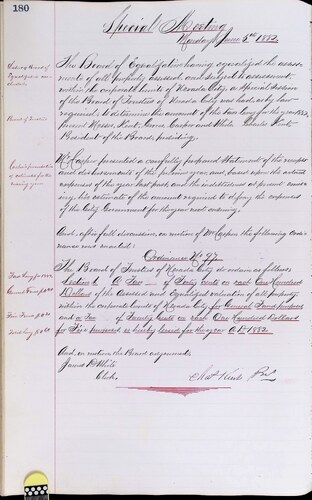 180
Special Meeting
Monday June 5th 1882.
The Board of Equalization having equalized the assess-
ments of all property assessed and subject to assessment,
within the corporate limits of Nevada City, a Special Session
of the Board of Trustees of Nevada City was had, as by law
required to determine the amount of the tax levy for the year 1882,
present Messrs. Casper and White. Charles Kent
President of the Board, presiding.
Board of Trustees
Mr Casper presented a carefully prepared statement of the receipts
and disbursements of the previous year, and based upon the actual
expenses of the year last past, and the indebtedness at present exist-
ing, his estimate of the amount required to defray the expenses
of the City Government for the year next ensuing.
And, after full discussion, on motion of Mr Casper the following Ordi-
nance was enacted:
Ordinance No 97.
The Board of Trustees of Nevada City do ordain as follows:
Section 1. A Tax of Sixty Cents on each One Hundred
Dollars of the Assessed and Equalized valuation of all property
within the corporate limits of Nevada City for General Fund purposes
and a Tax of Twenty Cents on each One Hundred Dollars
for Fire purposes is hereby levied for the year A.D. 1882.
Tax Levy for 1882
And, on motion the Board adjourned.
James D White
Clerk.
Chas Kent Pres